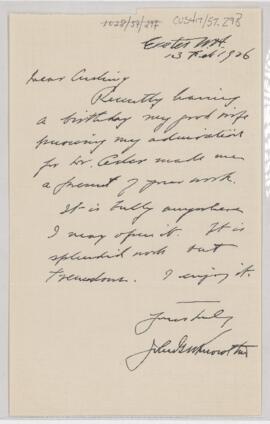 1028/57/297 CUS417/57.298
Exeter N.H.
13 Feb 1926
Dear Cushing
Recently having
a birthday my good wife
knowing my admiration
for Dr. Osler made me
a present of your work.
It is bully anywhere
I may open it. It is
splendid work but
tremendous. I enjoy it.
Yours truly